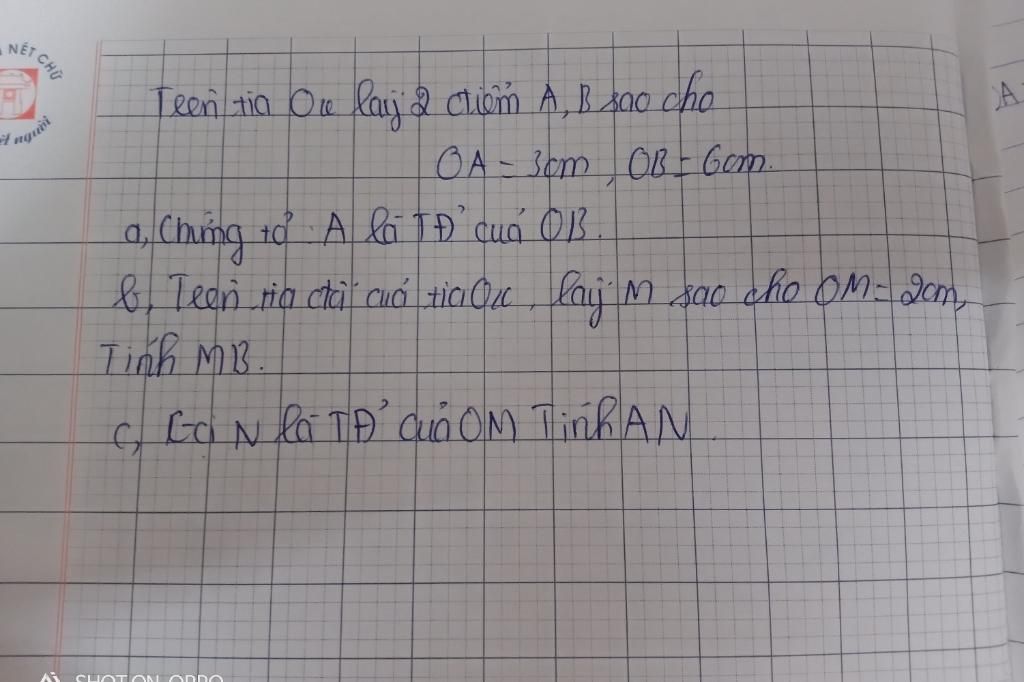 NÉT CHỮ
người
Trên tia Ox lấy 2 điểm A, B sao cho
OA = 3cm, OB = 6cm.
a, Chứng tỏ A là TĐ' của OB.
b, Trên tia đối của tia Ox, lấy M sao cho OM = 2cm,
Tính MB.
c, Gọi N là TĐ' của OM Tính AN.
A
SHOT ON OPPO